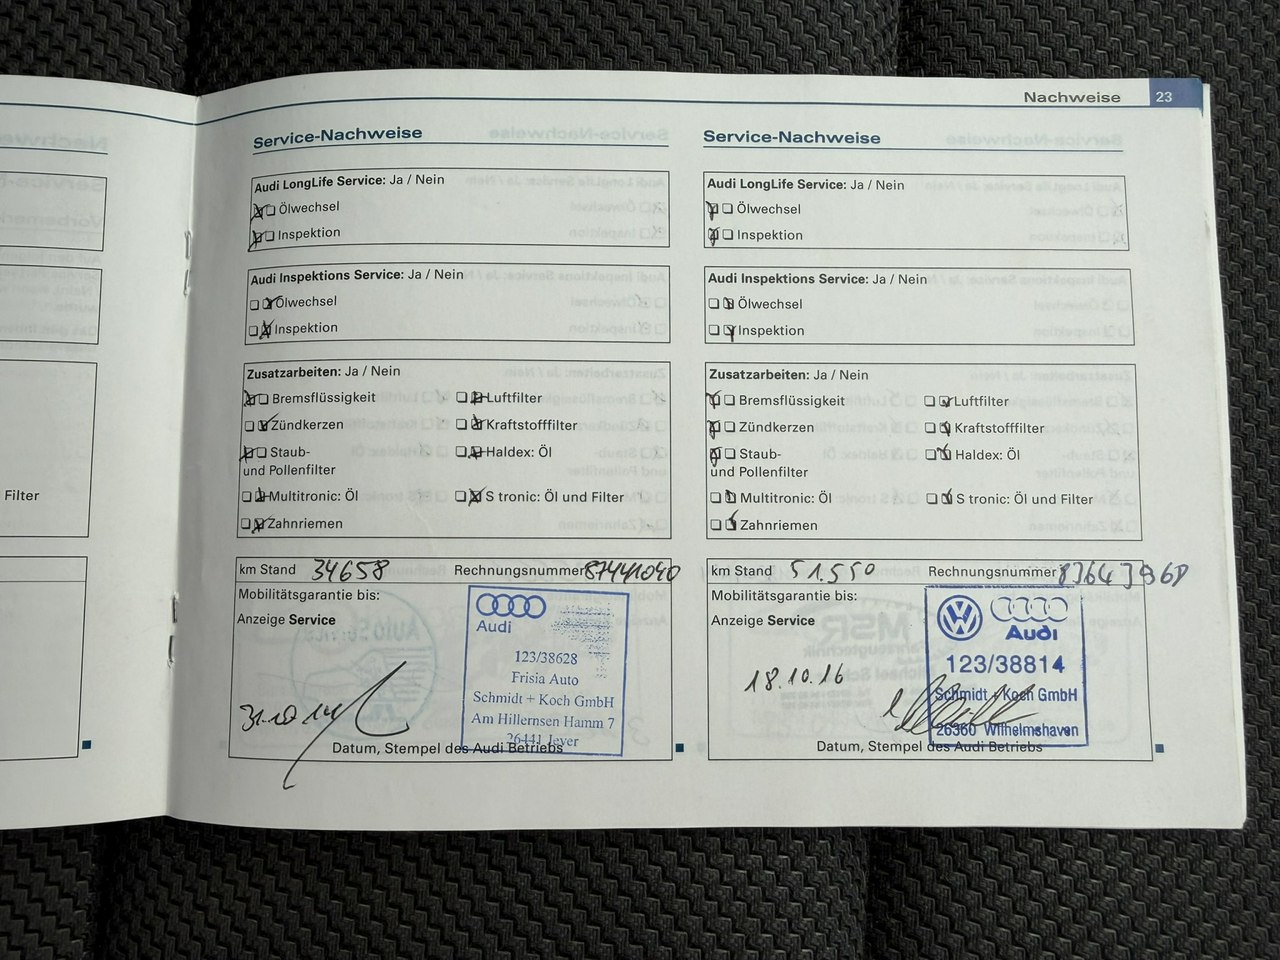 Nachweise 23
Filter
Service-Nachweise
Audi LongLife Service: Ja / Nein
Ölwechsel
Inspektion
Audi Inspektions Service: Ja / Nein
Ölwechsel
Inspektion
Zusatzarbeiten: Ja / Nein
Bremsflüssigkeit Luftfilter
Zündkerzen Kraftstofffilter
Staub- Haldex: Öl
und Pollenfilter
Multitronic: Öl S tronic: Öl und Filter
Zahnriemen
km Stand 34658 Rechnungsnummer
Mobilitätsgarantie bis:
Anzeige Service
Audi
123/38628
Frisia Auto
Schmidt + Koch GmbH
Am Hillernsen Hamm 7
26441 Jever
31.10.14
Datum, Stempel des Audi Betriebs
Service-Nachweise
Audi LongLife Service: Ja / Nein
Ölwechsel
Inspektion
Audi Inspektions Service: Ja / Nein
Ölwechsel
Inspektion
Zusatzarbeiten: Ja / Nein
Bremsflüssigkeit Luftfilter
Zündkerzen Kraftstofffilter
Staub- Haldex: Öl
und Pollenfilter
Multitronic: Öl S tronic: Öl und Filter
Zahnriemen
km Stand 51.550 Rechnungsnummer
Mobilitätsgarantie bis:
Anzeige Service
Audi
123/38814
Schmidt + Koch GmbH
26360 Wilhelmshaven
18.10.16
Datum, Stempel des Audi Betriebs